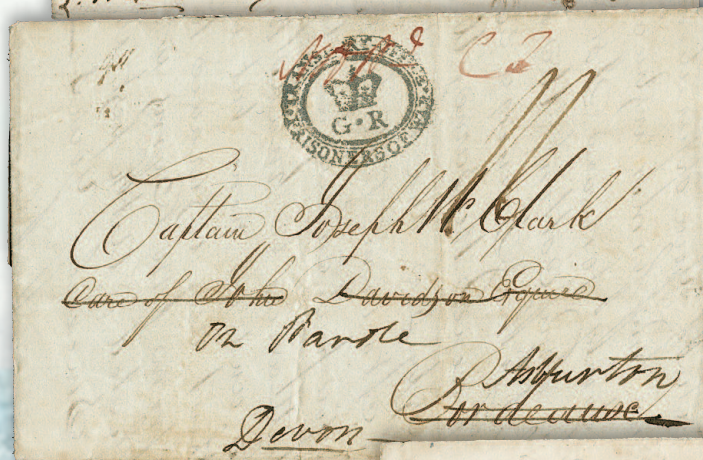 TRANSPORT OFFICE
G·R
PRISONERS OF WAR
Captain Joseph W. Clark
Care of John Davidson Esquire
on Parole
Ashburton
Bordeaux
Devon